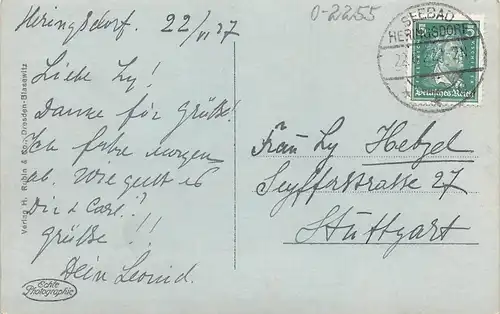 Heringsdorf. 22/VI 27
0-2255
Liebe Ly!
Danke für Grüße!
Ich fahre morgen
ab. Wie geht es
Dir & Carl?
Grüße!!
Dein Leonid.
SEEBAD
HERINGSDORF
5
Deutsches Reich
Frau Ly Hebzel
Seyfferstrasse 27
Stuttgart
Verlag H. Rubin & Co., Dresden-Blasewitz
Echte
Photographie